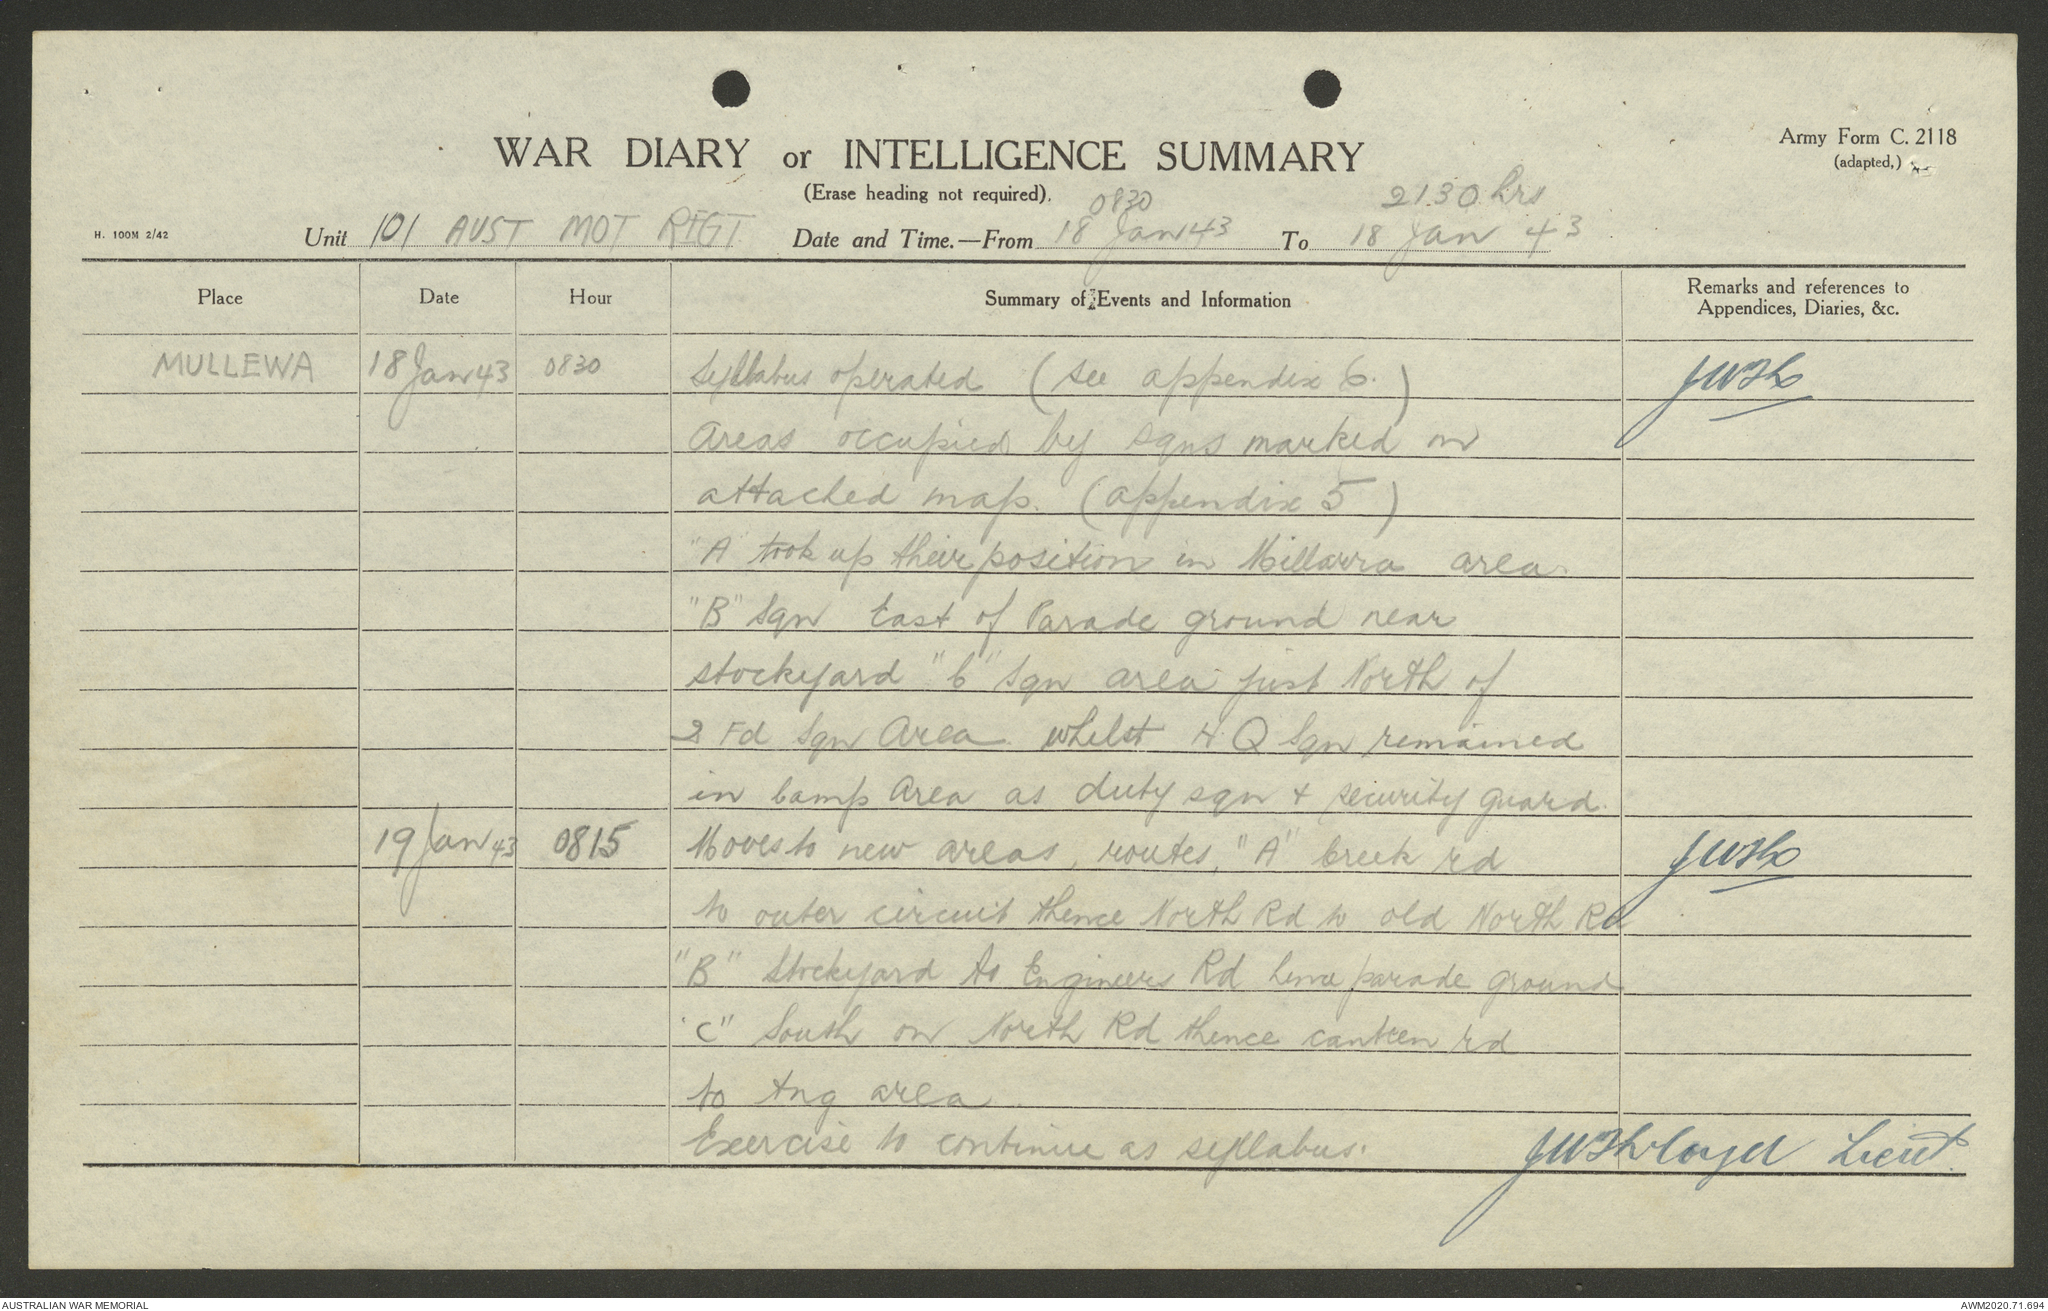 Army Form C. 2118
(adapted,)
WAR DIARY or INTELLIGENCE SUMMARY
(Erase heading not required).
H. 100M 2/42
Unit 101 AUST MOT REGT Date and Time.—From 0830 18 Jan 43 To 2130 hrs 18 Jan 43
Place Date Hour Summary of Events and Information Remarks and references to Appendices, Diaries, &c.
MULLEWA 18 Jan 43 0830 Syllabus operated (See appendix 6.)
Areas occupied by sqns marked on
attached map. (appendix 5)
"A" took up their position in Millarra area.
"B" Sqn East of Parade ground near
stockyard "C" Sqn area just North of
2 Fd Sqn Area whilst H.Q Sqn remained
in Camp Area as duty sqn + security guard.
19 Jan 43 0815 Moves to new areas, routes, "A" Creek rd
to outer circuit thence North Rd to old North Rd
"B" Stockyard to Engineers Rd hence parade ground
"C" South on North Rd thence canteen rd
to tng area.
Exercise to continue as syllabus.
Lieut.
AUSTRALIAN WAR MEMORIAL
AWM2020.71.694